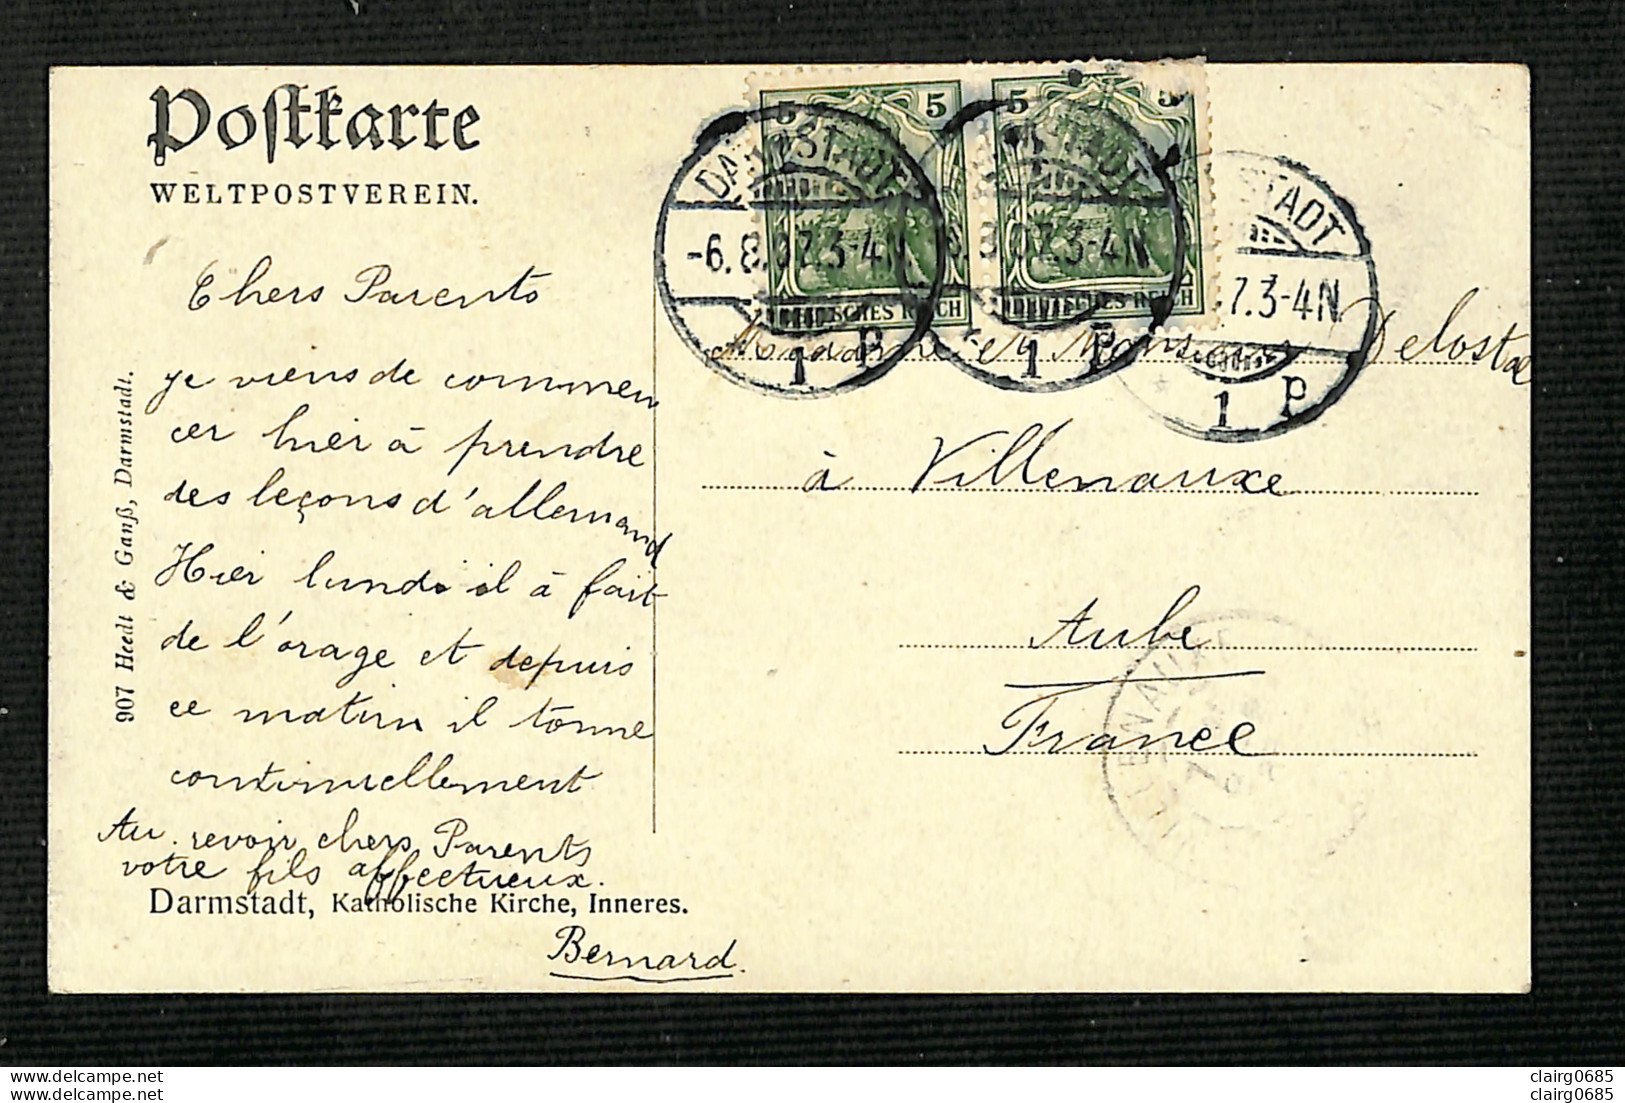 Postkarte
WELTPOSTVEREIN.
Chers Parents
je viens de commen
cer hier à prendre
des leçons d'allemand
Hier lundi il à fait
de l'orage et depuis
ce matin il tonne
continuellement
Au revoir chers Parents
votre fils affectueux.
Bernard.
Darmstadt, Katholische Kirche, Inneres.
907 Heedt & Ganß, Darmstadt.
5 5
DEUTSCHES REICH
5 5
DEUTSCHES REICH
DARMSTADT
-6.8.07.3-4N
1 P
DARMSTADT
6.8.07.3-4N
1 P
STADT
.7.3-4N
1 P
Madame et Monsieur Delostal
à Villenauxe
Aube
France
delcampe.net
clairg0685
clairg0685